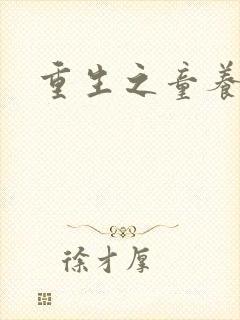 重生之童养
徐才厚